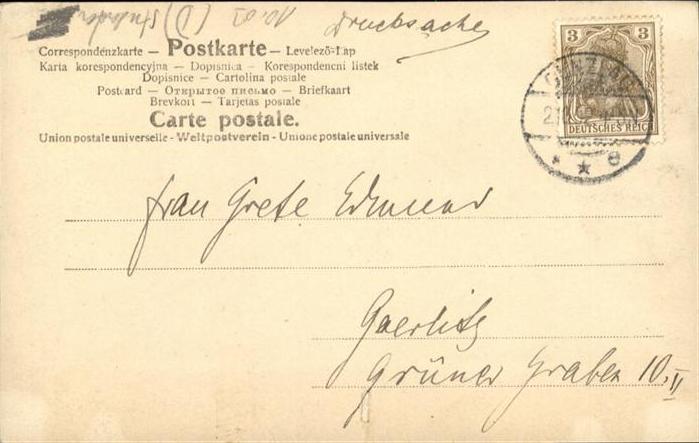 (D) 10.03
Drucksache
Correspondenzkarte — Postkarte — Levelező-Lap
Karta korespondencyjna — Dopisnica — Korespondencni listek
Dopisnice — Cartolina postale
Postcard — Открытое письмо — Briefkaart
Brevkort — Tarjetas postale
Carte postale.
Union postale universelle - Weltpostverein - Unione postale universale
3 3
DEUTSCHES REICH
e
Frau Grete
Goerlitz
Grüner Graben 10, II